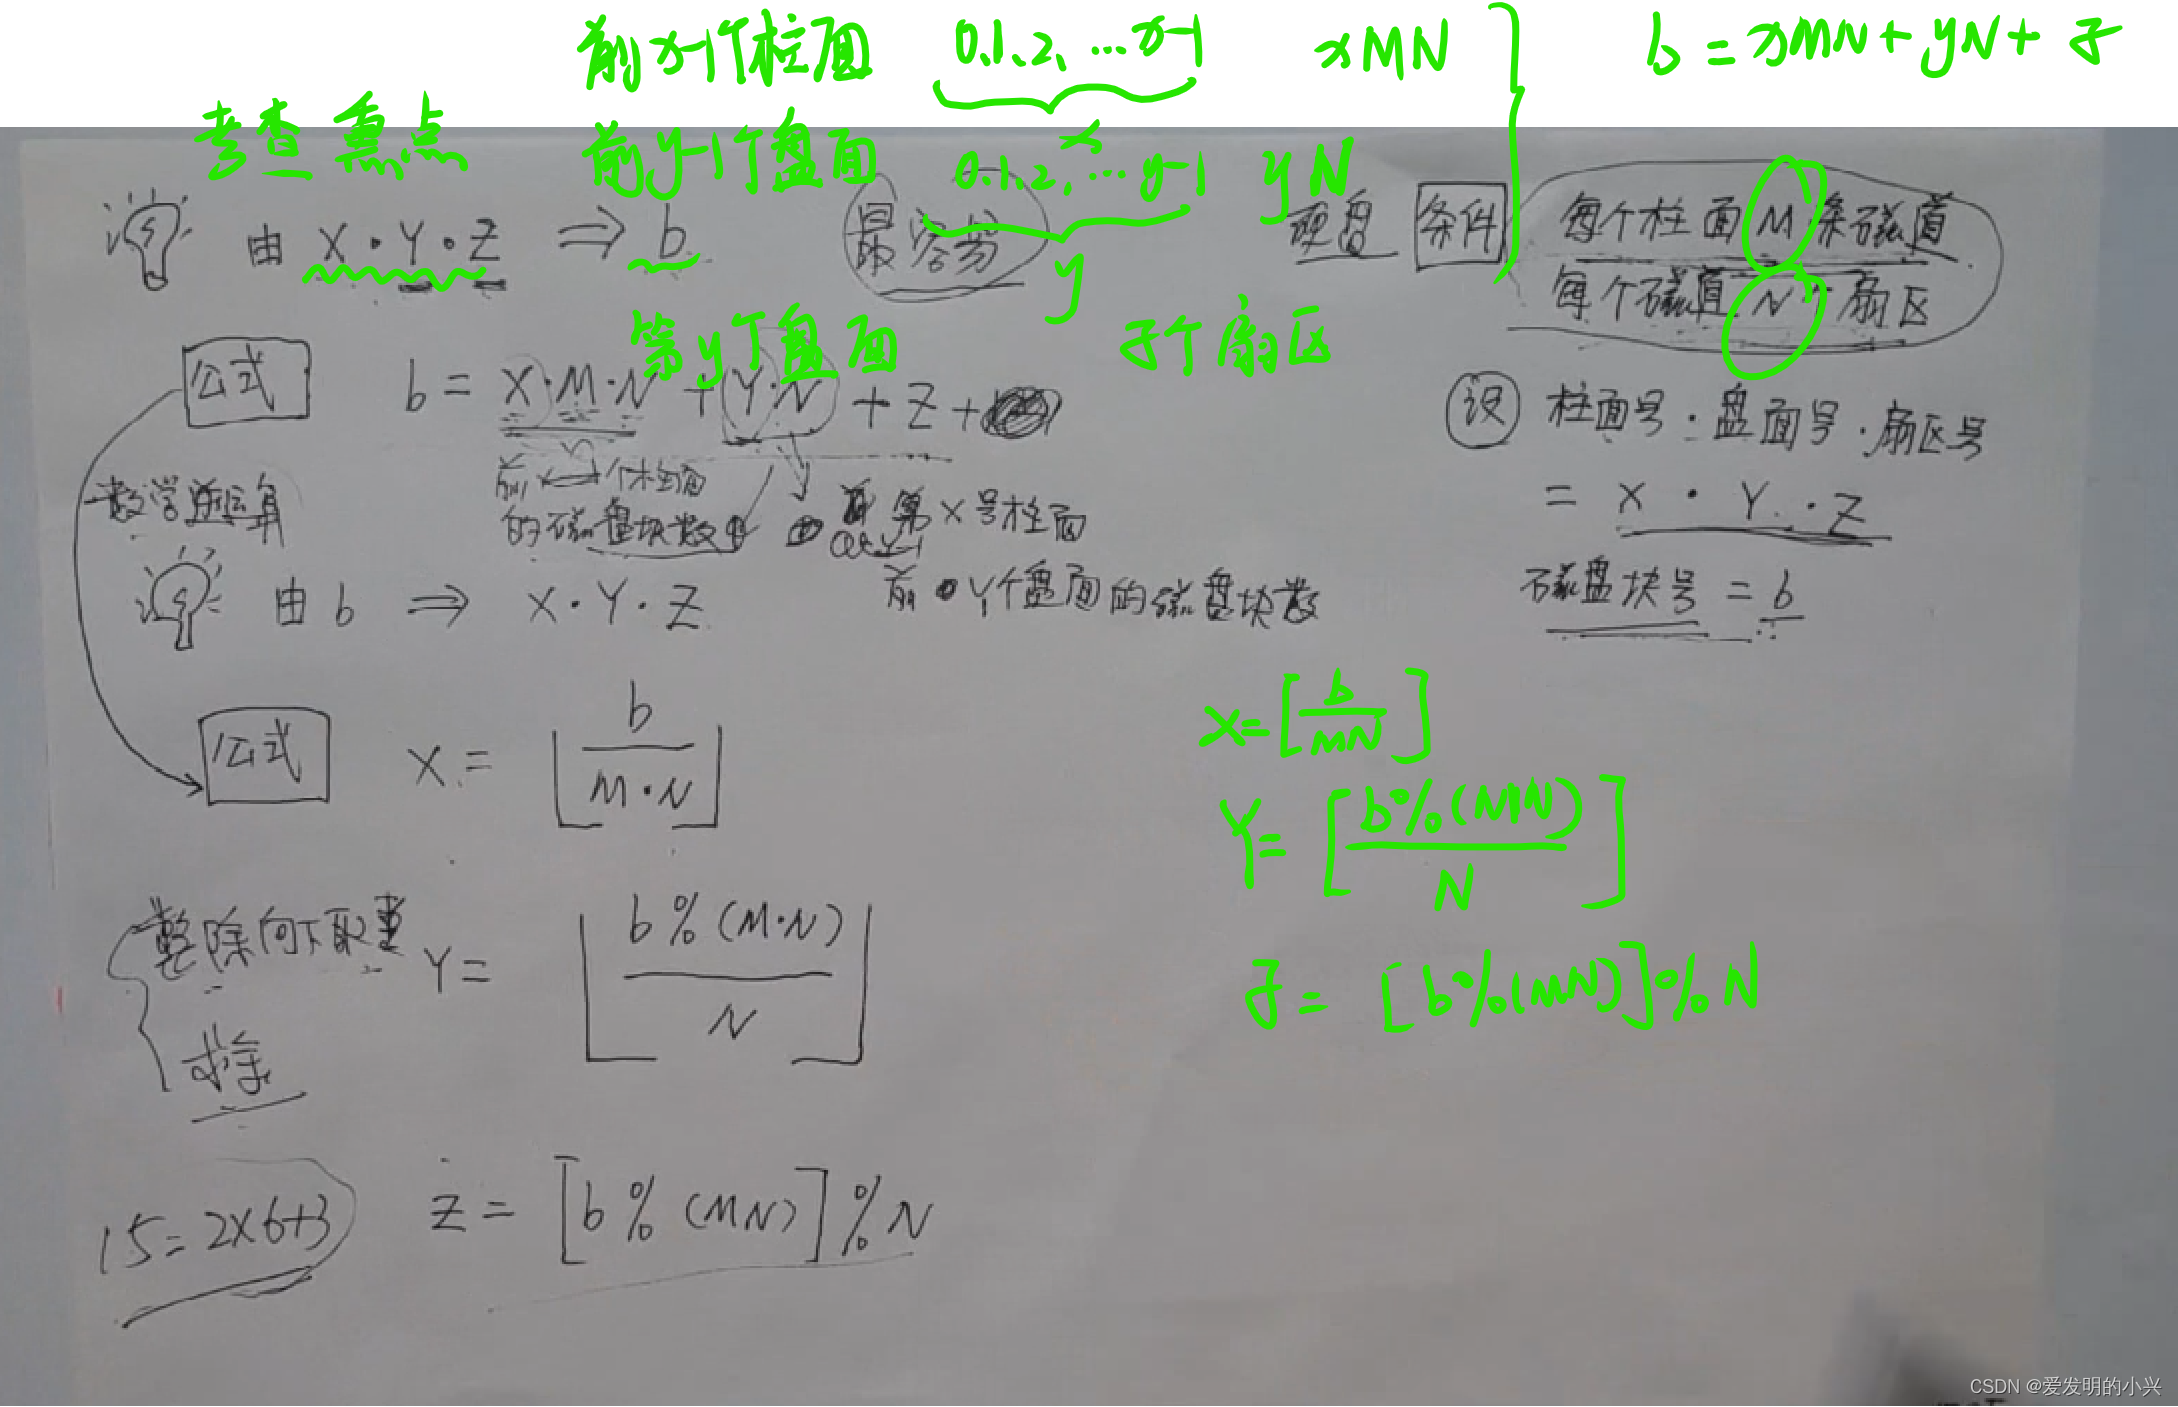 前x-1个柱面 0.1.2, …x-1 xMN b = xMN + yN + z
x
考查重点
前y-1个盘面 0.1.2, …y-1 yN
y
由 X·Y·Z ⇒ b 最容易 硬盘 条件 每个柱面M条磁道
每个磁道N个扇区
第y个盘面 z个扇区
公式 b = X·M·N + Y·N + Z +
设 柱面号·盘面号·扇区号
= X · Y · Z
前 个柱面
的磁盘块数
第X号柱面
前 Y个盘面的磁盘块数
数学逆运算
磁盘块号 = b
由 b ⇒ X·Y·Z
公式 X = ⌊b / M·N⌋
X = [b / MN]
整除向下取整
求余
Y = ⌊b%(M·N) / N⌋
Y = [b%(MN) / N]
z = [b%(MN)]%N
15 = 2×6+3
Z = [b%(MN)]%N
CSDN @爱发明的小兴